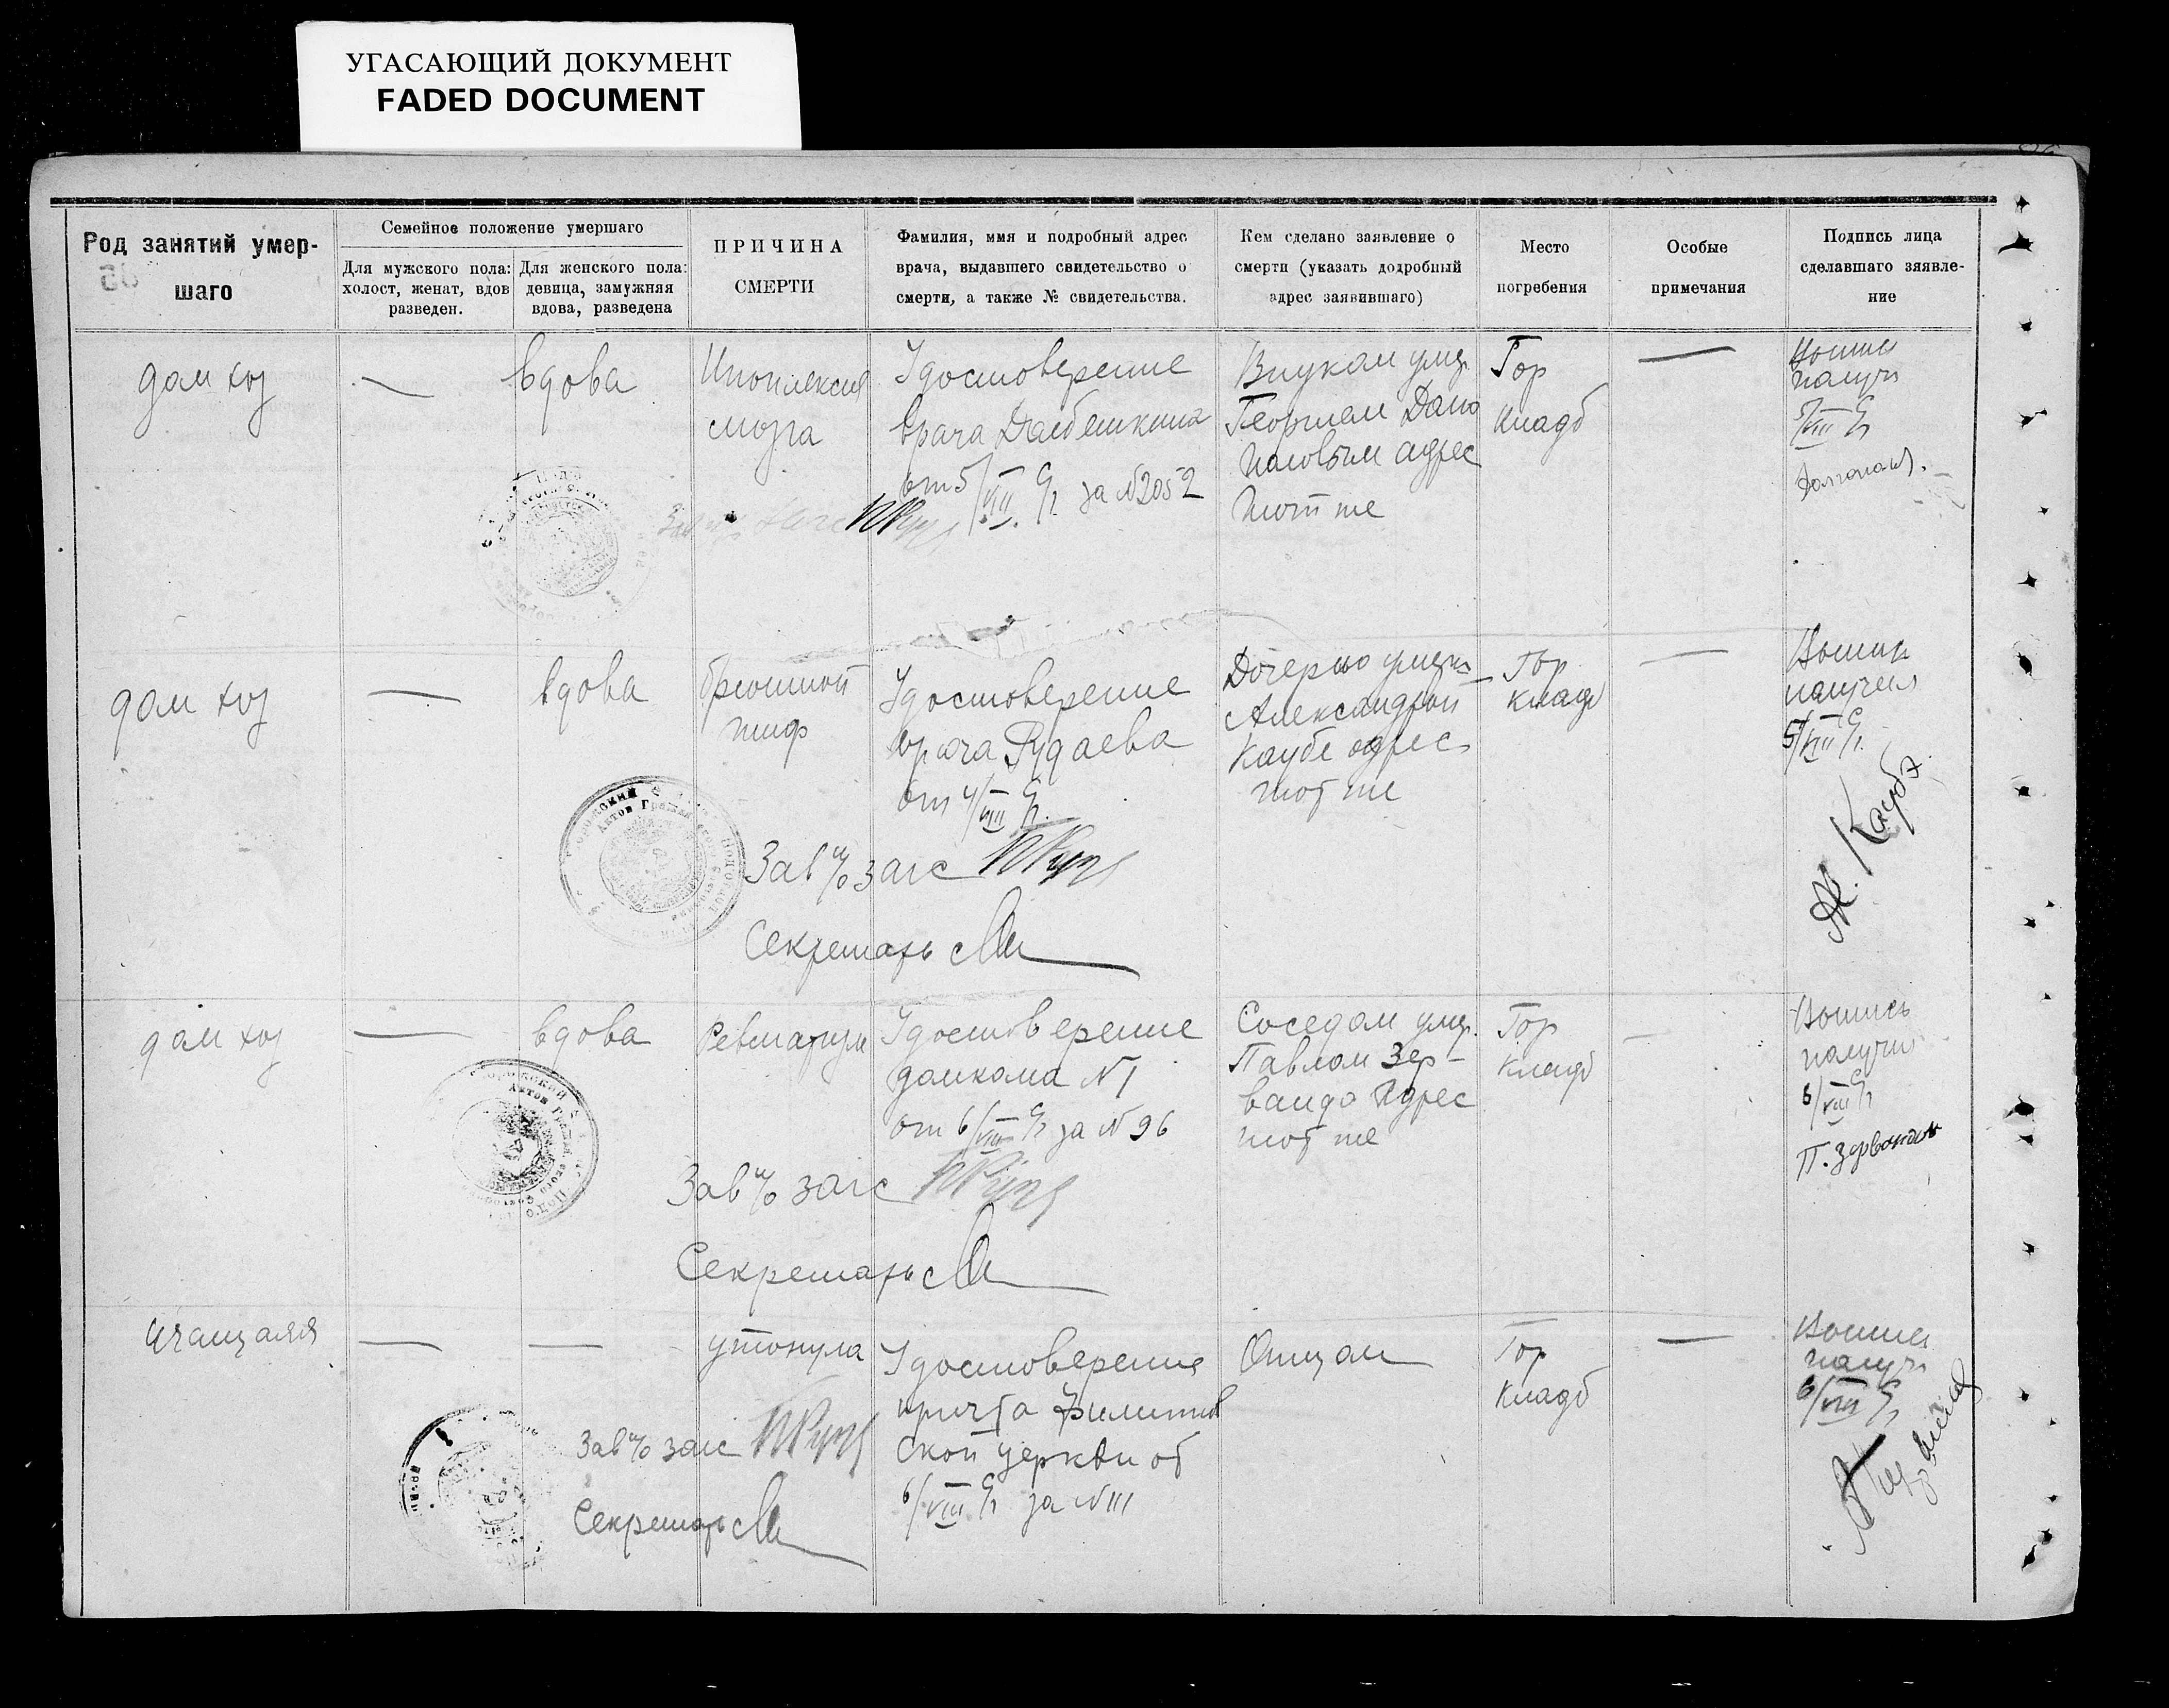 УГАСАЮЩИЙ ДОКУМЕНТ
FADED DOCUMENT
Род занятий умер-
шаго
Семейное положение умершаго
Для мужского пола:
холост, женат, вдов
разведен.
Для женского пола:
девица, замужняя
вдова, разведена
ПРИЧИНА
СМЕРТИ
Фамилия, имя и подробный адрес
врача, выдавшего свидетельство о
смерти, а также № свидетельства.
Кем сделано заявление о
смерти (указать додробный
адрес заявившаго)
Место
погребения
Особые
примечания
Подпись лица
сделавшаго зяявле-
ние
дом хоз
—
вдова
мозга
Удостоверение
врача
от 5/VIII с/г. за N 2052
Внуком умер.
Георгием
адрес
тот же
Гор
Кладб
—
Выпись
получ
5/VIII с/г
дом хоз
—
вдова
брюшной
тиф
Удостоверение
врача Рудаева
от 4/VIII с/г.
Зав п/о загс
Секретарь
Дочерью умерш
Александрой
Каубе адрес
тот же
Гор
кладб
—
Выпись
получил
5/VIII с/г.
А. Каубе
дом хоз
—
вдова
Ревматизм
Удостоверение
домкома N 1
от 6/VIII с/г за N 96
Зав п/о загс
Секретарь
Соседом умер.
Павлом Зер-
вандо Адрес
тот же
Гор
Кладб
—
Выпись
получил
6/VIII с/г
П. Зервандов
Учащаяя
—
—
утонула
Удостоверение
причта
ской церкви от
6/VIII с/г за N 111
Зав п/о загс
Секретарь
Отцом
Гор
Кладб
—
Выпись
получ
6/VIII с/г